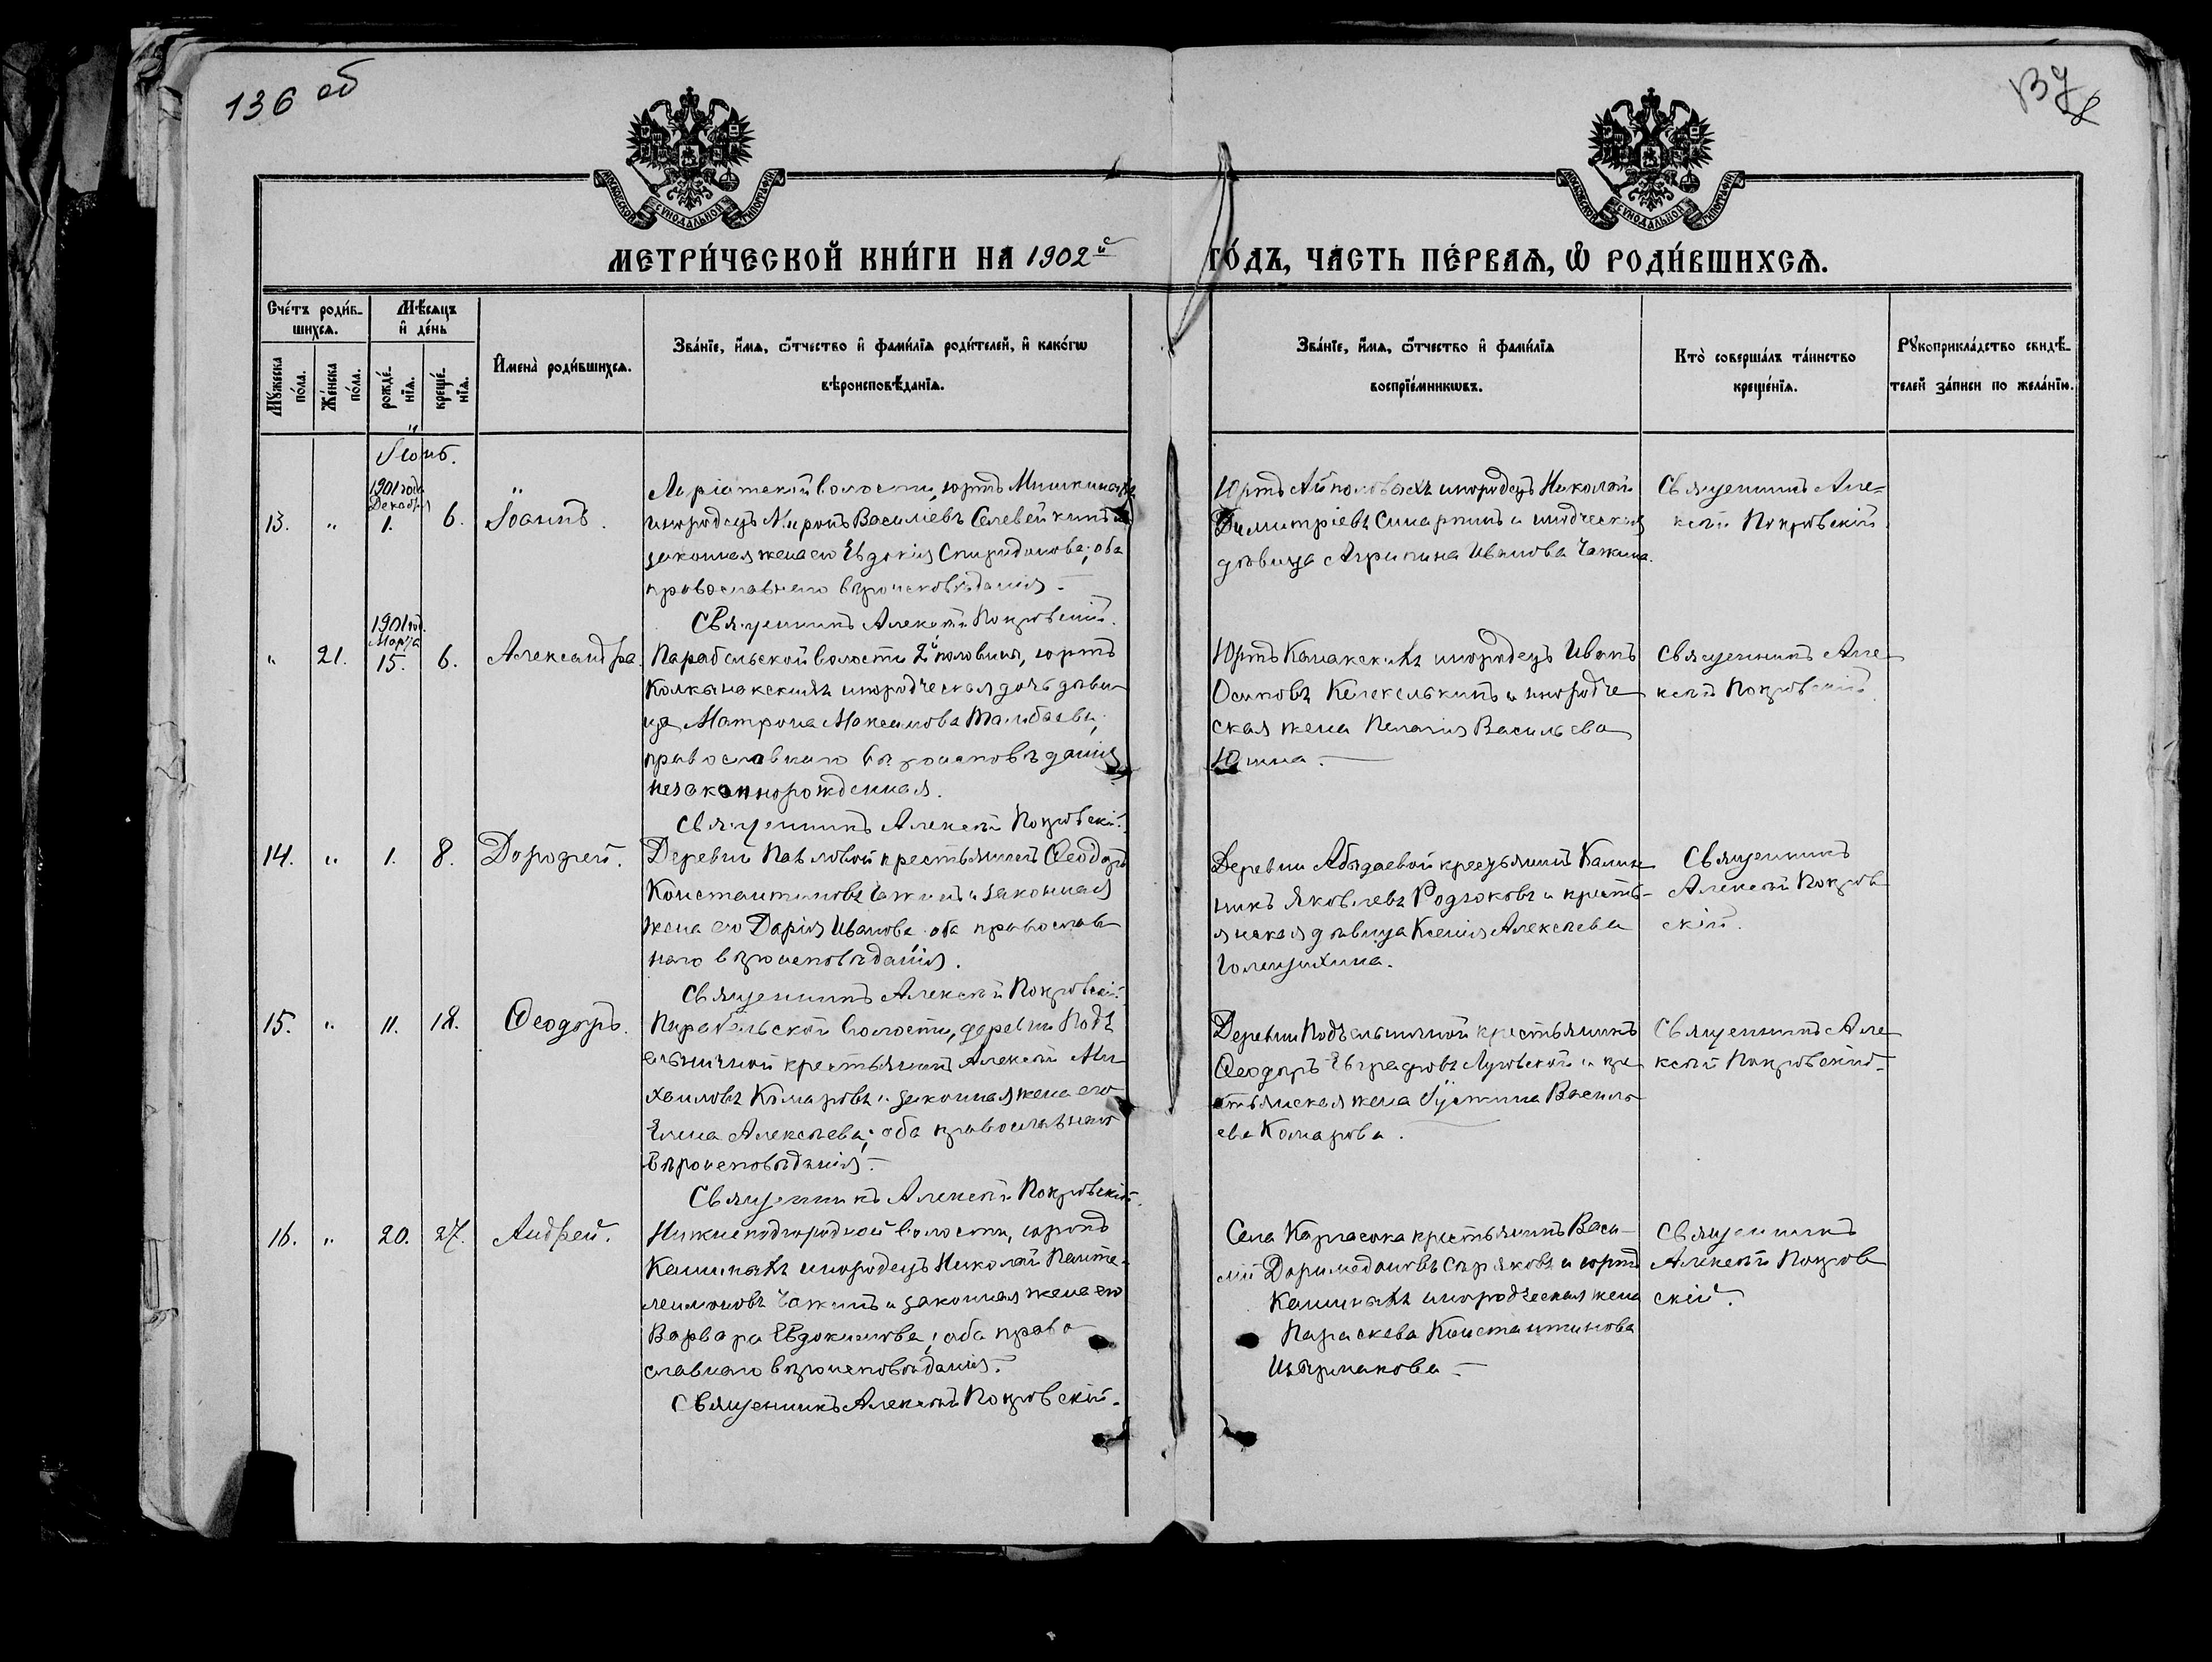 136 об
137
МОСКОВСКОЙ СѴНОДАЛЬНОЙ ТИПОГРАФІИ
МОСКОВСКОЙ СѴНОДАЛЬНОЙ ТИПОГРАФІИ
МЕТРИ́ЧЕСКОЙ КНИ́ГИ НА 1902й
ГО́ДЪ, ЧА́СТЬ ПЕ́РВАѦ, Ѽ РОДИ́ВШИХСѦ.
Сче́тъ роди́в-
шихсѧ.
Мѣ́сѧцъ
и҆ де́нь
Мꙋ́жеска
по́ла.
Же́нска
по́ла.
рожде́-
нїѧ.
креще́-
нїѧ.
И҆мена̀ роди́вшихсѧ.
Зва́нїе, и҆́мѧ, ѻ҆́тчество и҆ фами́лїѧ роди́телей, и҆ како́гѡ
вѣроисповѣ́данїѧ.
Зва́нїе, и҆́мѧ, ѻ҆́тчество и҆ фами́лїѧ
воспрїе́мникѡвъ.
Кто̀ соверша́лъ та́инство
креще́нїѧ.
Рꙋкоприкла́дство свидѣ́-
телей за́писи по жела́нїю.
Іюнь.
1901 года
Декабря
13. „ 1. 6. Іоаннъ.
Ларіатской волости, юртъ Мишкиныхъ
инородецъ Миронъ Василіевъ Селевейкинъ и
законная жена его Евдокія Спиридонова; оба
православнаго вѣроисповѣданія –
Священникъ Алексѣй Покровскій.
Юртъ Айполовыхъ инородецъ Николай
Димитріевъ Синарпинъ и инодческая
дѣвица Агрипина Иванова Чажина.
Священникъ Але-
ксѣй Покровскій
1901 год.
Марта
„ 21. 15. 6. Александра.
Парабельской волости 2й половины, юртъ
Колканакскихъ инородческая дочь дѣви
ца Матрона Максимова Талбаева,
православнаго вѣроисповѣданія
незаконнорожденная.
Священникъ Алексѣй Покровскій.
Юртъ Канакскихъ инородецъ Иванъ
Осиповъ и инородче
ская жена Пелагія Васильева
Юшна. –
Священникъ Але
ксѣй Покровскій.
14. „ 1. 8. Дорофей.
Деревни Павловой крестьянинъ Ѳеодоръ
Константиновъ Чажинъ и законная
жена его Дарія Иванова оба православ
наго вѣроисповѣданія.
Священникъ Алексѣй Покровскій.
Деревни крестьянинъ Калин
никъ Яковлевъ Родюковъ и кресть-
янская дѣвица Ксенія Алексѣева
Голещихина.
Священникъ
Алексѣй Покров
скій.
15. „ 11. 18. Ѳеодоръ.
Парабельской волости, деревни Подъ
ельничной крестьянинъ Алексѣй Ми
хаиловъ Комаровъ и законная жена его
Елена Алексѣева; оба православнаго
вѣроисповѣданія. –
Священникъ Алексѣй Покровскій.
Деревни Подъельничной крестьянинъ
Ѳеодоръ Евграфовъ Луговской и кре
стьянская жена Іустина Василь
ева Комарова.
Священникъ Але
ксѣй Покровскій.
16. „ 20. 27. Андрей.
Нижнеподгородной волости, юртъ
Казиныхъ инородецъ Николай Панте-
леимоновъ Чажинъ и законная жена его
Варвара Евдокимова; оба право
славнаго вѣроисповѣданія. –
Священникъ Алексѣй Покровскій.
Села Каргасока крестьянинъ Васи-
лій Доримедонтовъ Сѣряковъ и юртъ
Казиныхъ инородческая жена
Параскева Константинова
–
Священникъ
Алексѣй Покров
скій.